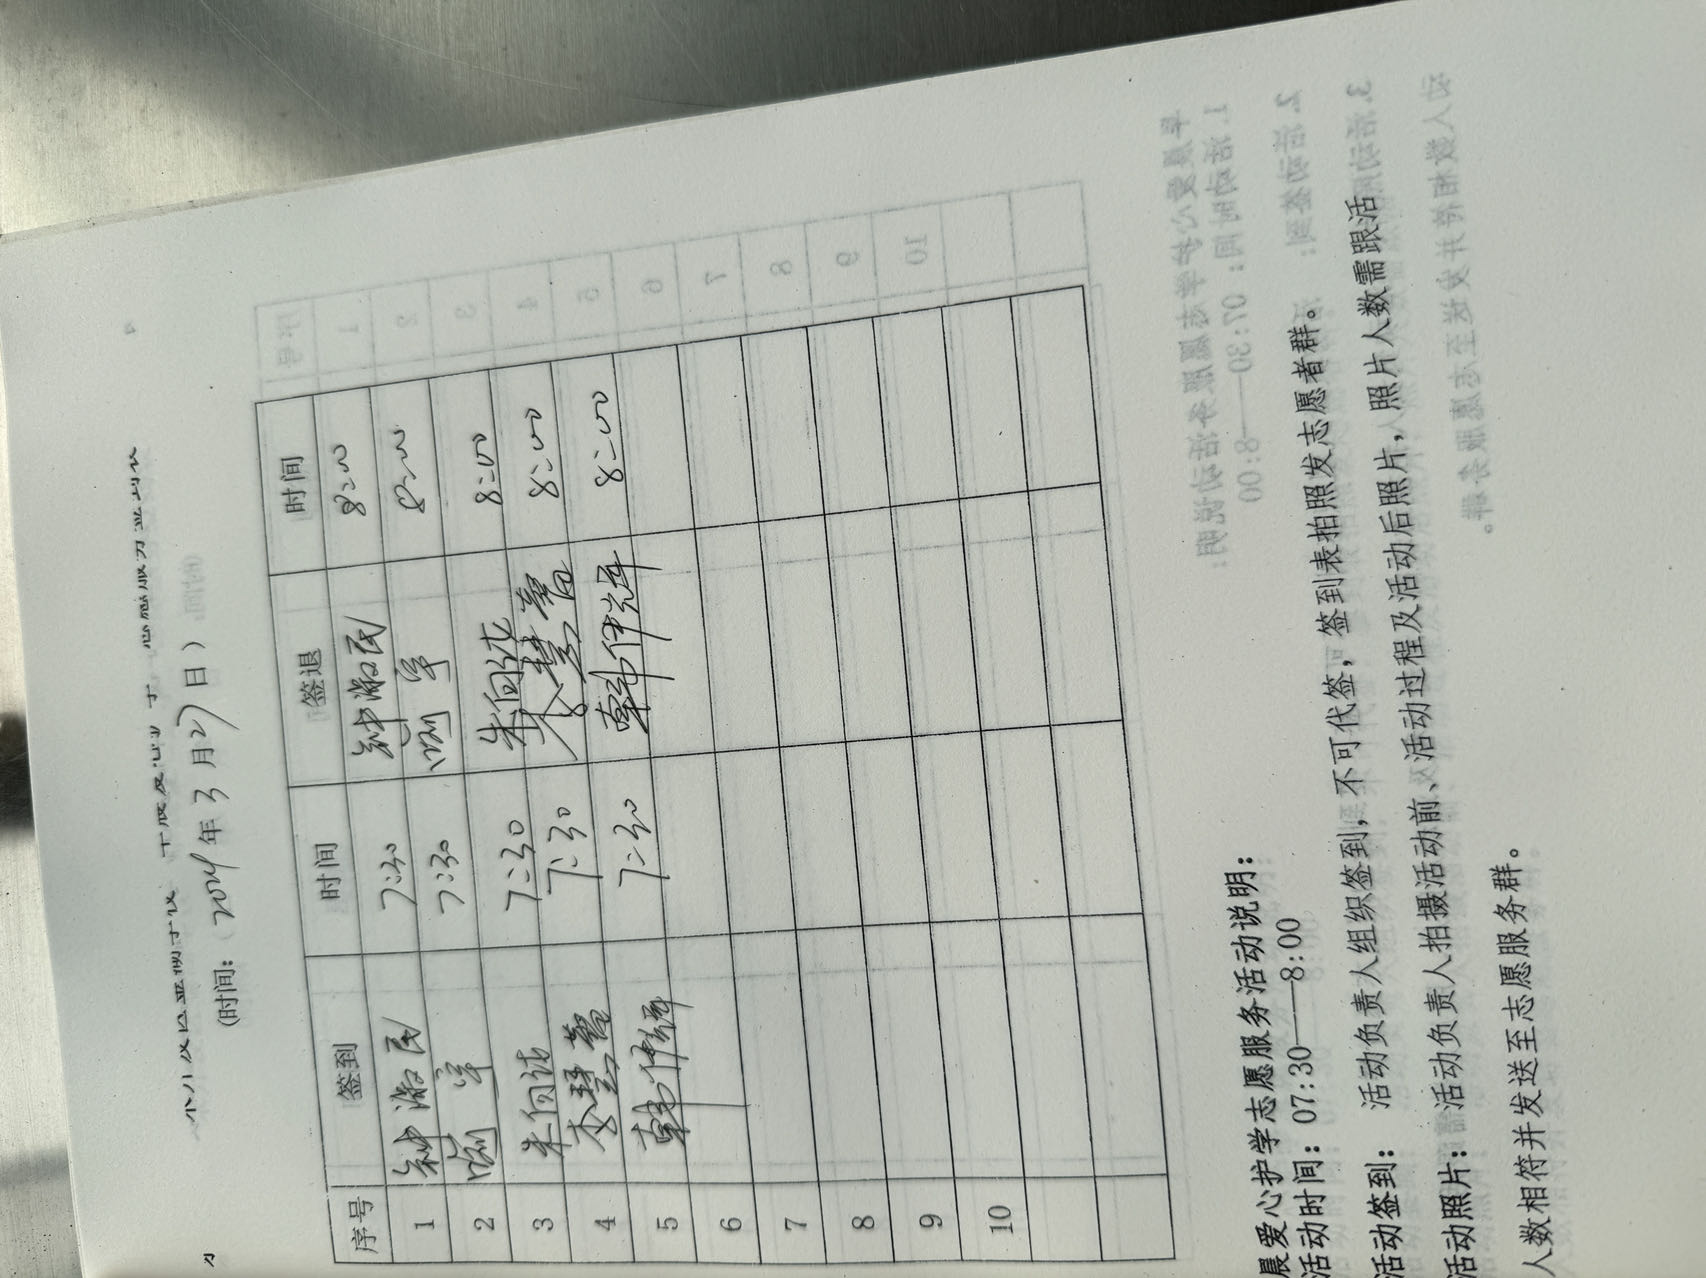 (时间：2024年3月27日)
序号 签到 时间 签退 时间
1 钟淑民 7:30 钟淑民 8:00
2 7:30 8:00
3 朱向 7:30 朱向 8:00
4 李慧 7:30 李慧 8:00
5 韩伟辉 7:30 韩伟辉 8:00
6
7
8
9
10
晨爱心护学志愿服务活动说明：
活动时间：07:30——8:00
活动签到： 活动负责人组织签到，不可代签，签到表拍照发志愿者群。
活动照片：活动负责人拍摄活动前、活动过程及活动后照片，照片人数需跟活
人数相符并发送至志愿服务群。